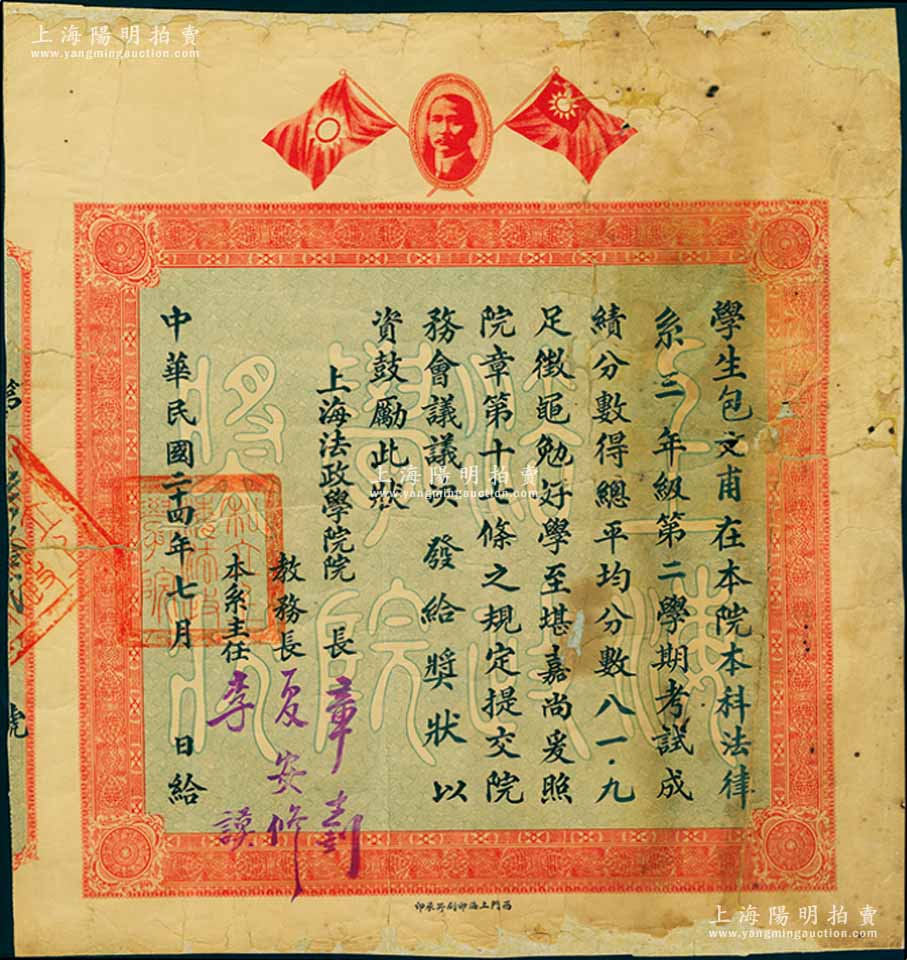 學生包文甫在本院本科法律
系二年級第二學期考試成
績分數得總平均分數八一·九
足徵黽勉好學至堪嘉尚爰照
院章第十條之規定提交院
務會議議決發給獎狀以
資鼓勵此狀
上海法政學院院長 章
教務長 夏安修
本系主任 李謨
中華民國二十四年七月 日給
號
上海陽明拍賣
www.yangmingauction.com
上海陽明拍賣
www.yangmingauction.com
上海陽明拍賣
www.yangmingauction.com